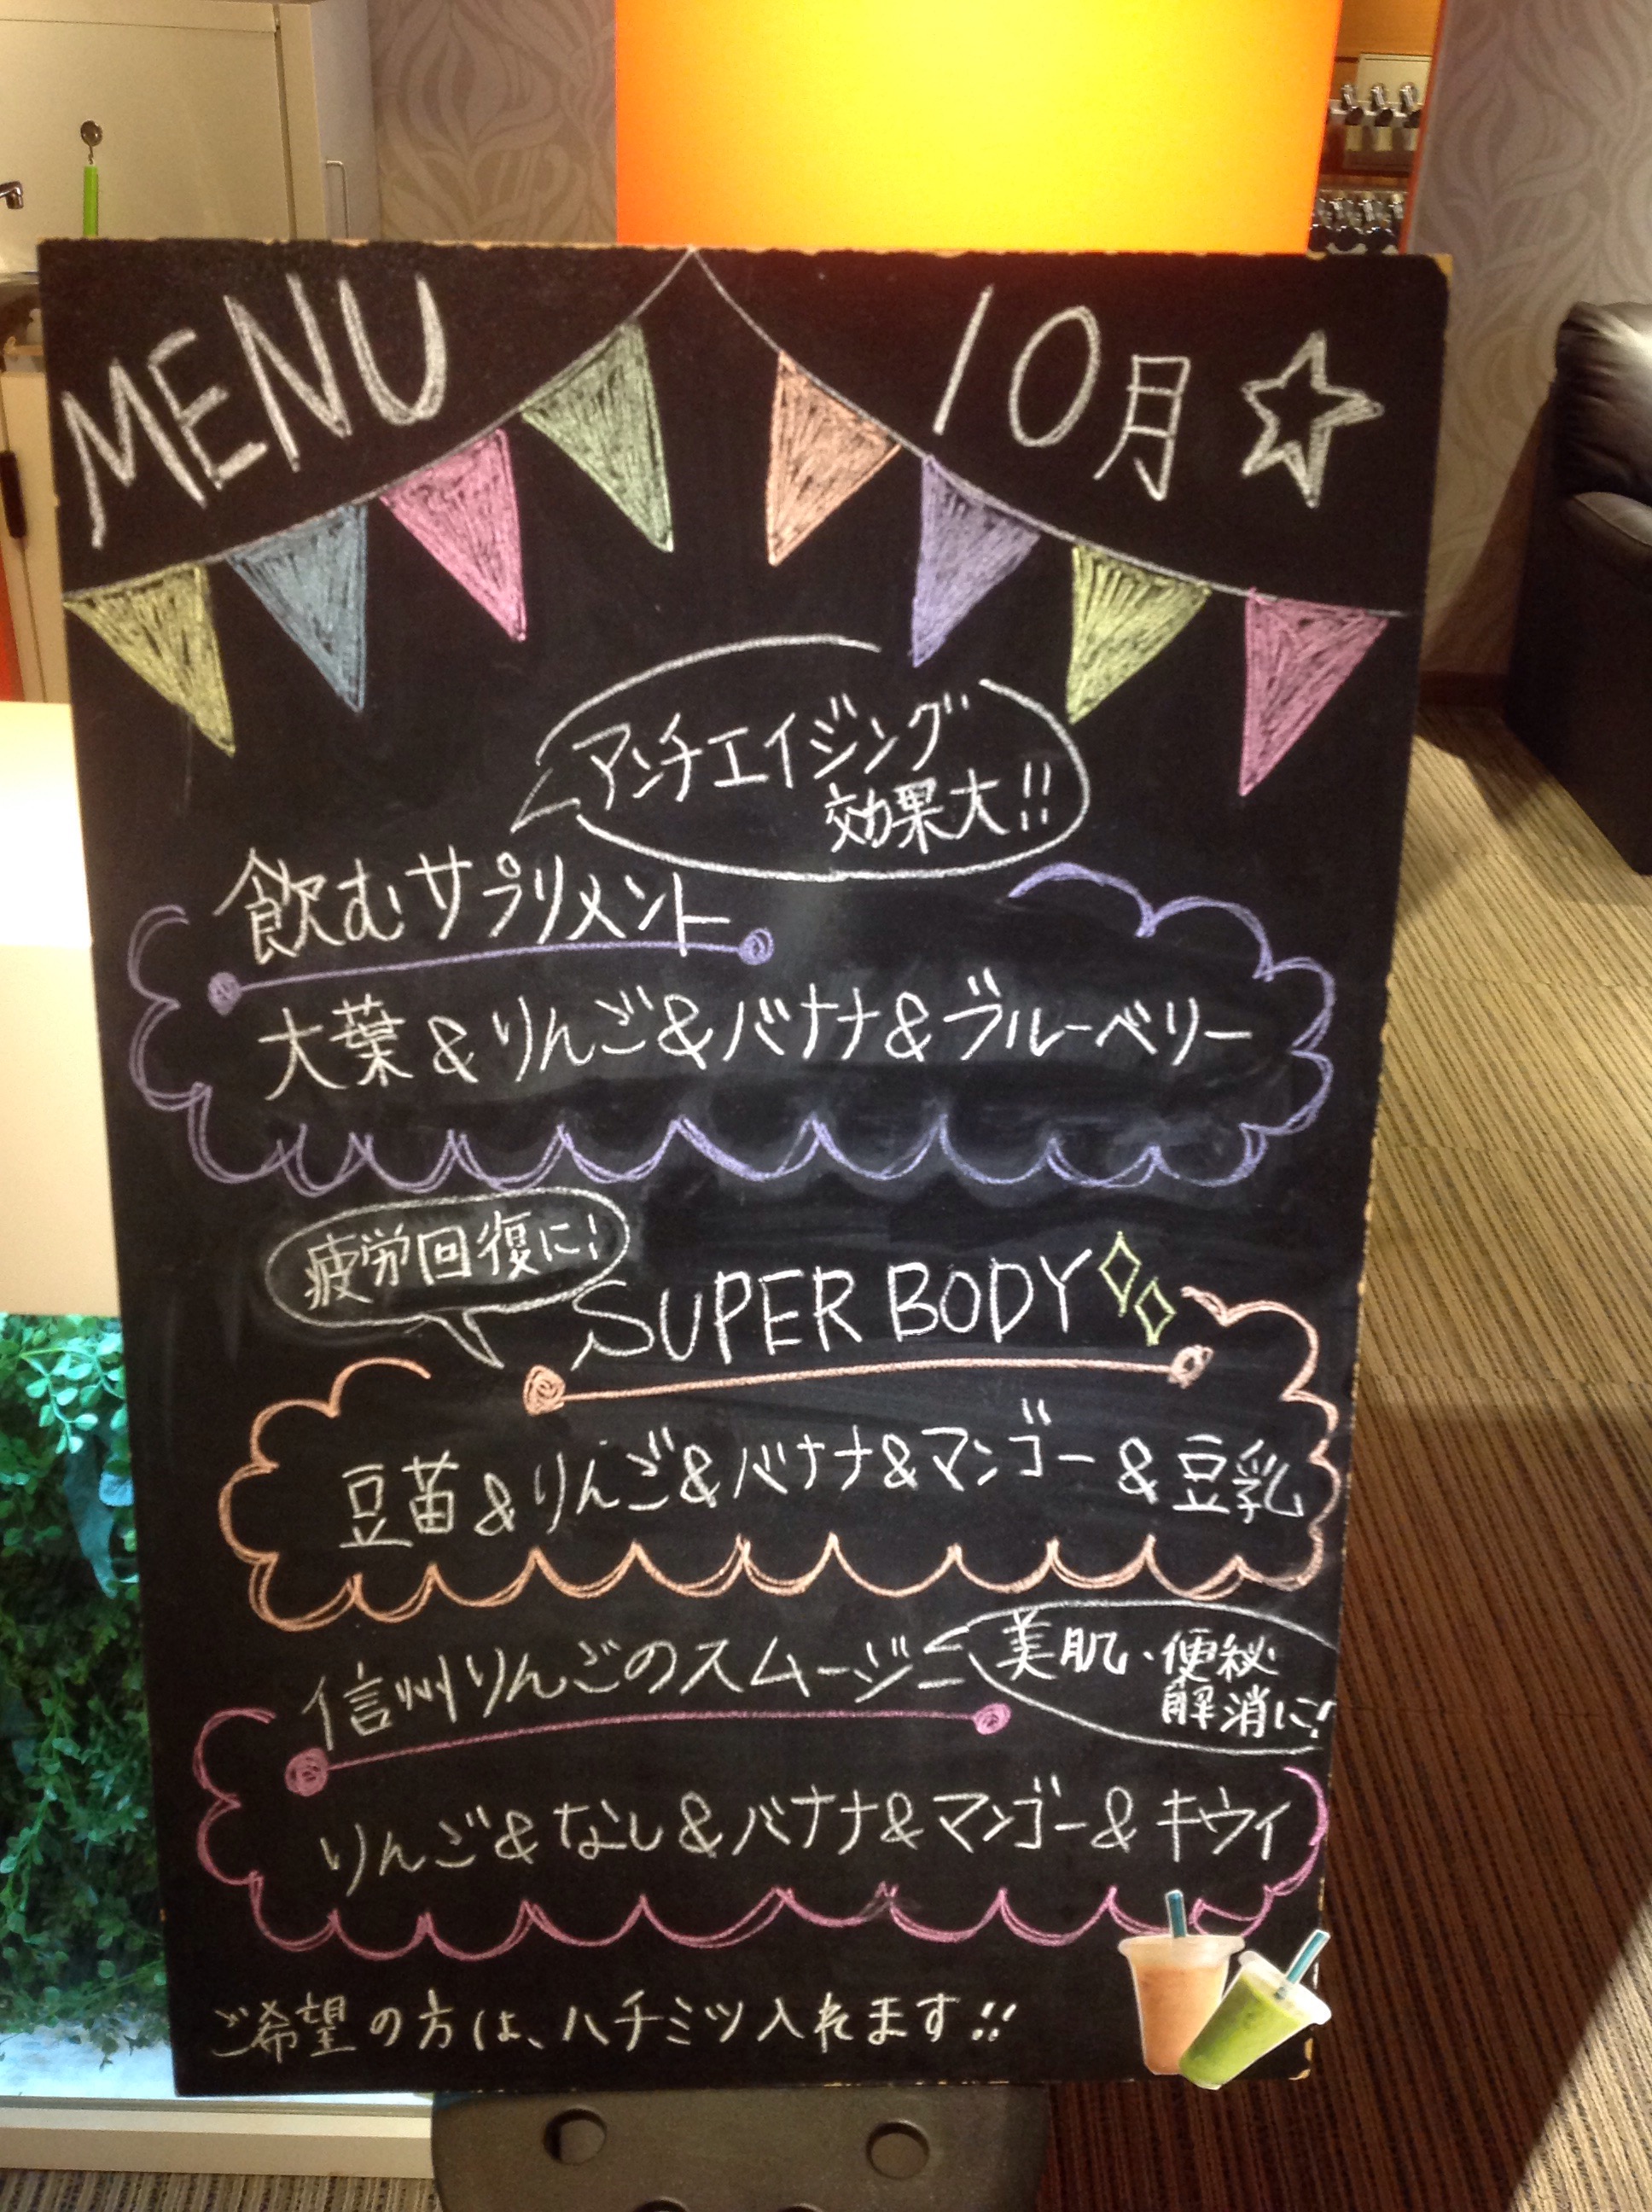 MENU
10月☆
アンチエイジング
効果大!!
飲むサプリメント
大葉&りんご&バナナ&ブルーベリー
疲労回復に!
SUPER BODY
豆苗&りんご&バナナ&マンゴー&豆乳
信州りんごのスムージー
美肌・便秘
解消に!
りんご&なし&バナナ&マンゴー&キウイ
ご希望の方は、ハチミツ入れます!!